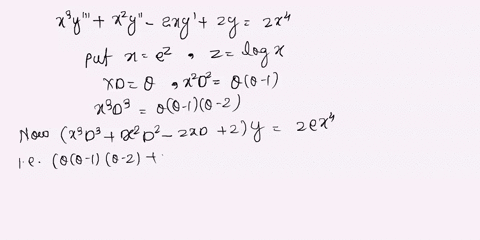 x³y''' + x²y'' - 2xy' + 2y = 2x⁴
put x = e² , z = log x
xD = θ , x²D² = θ(θ-1)
x³D³ = θ(θ-1)(θ-2)
Now (x³D³ + x²D² - 2xD + 2)y = 2ex⁴
i.e. (θ(θ-1)(θ-2) +